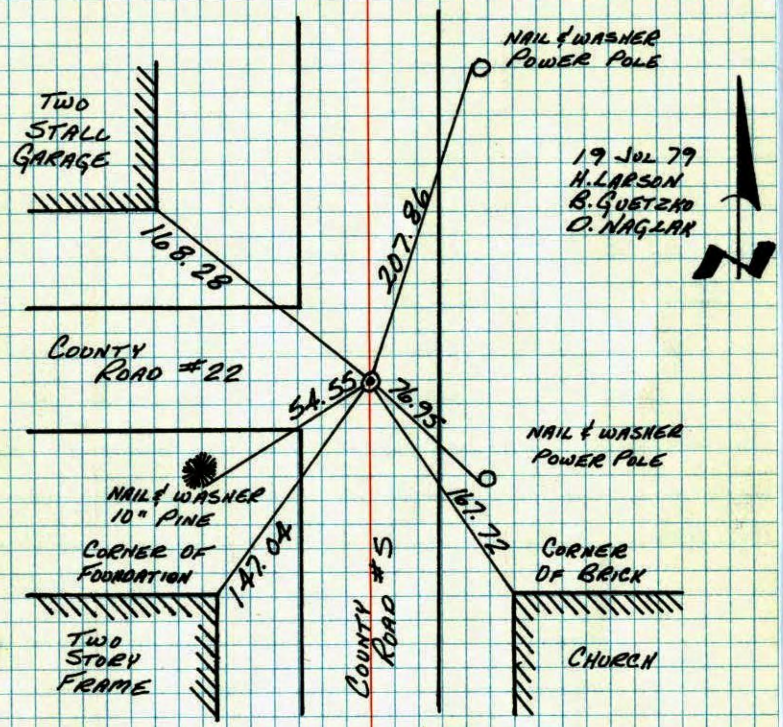 NAIL & WASHER
POWER POLE
TWO
STALL
GARAGE
19 JUL 79
H. LARSON
B. GUETZKO
D. NAGLAK
168.28
207.86
N
COUNTY
ROAD #22
54.55
76.95
NAIL & WASHER
POWER POLE
NAIL & WASHER
10" PINE
167.72
147.04
CORNER OF
FOUNDATION
CORNER
OF BRICK
COUNTY
ROAD #5
TWO
STORY
FRAME
CHURCH